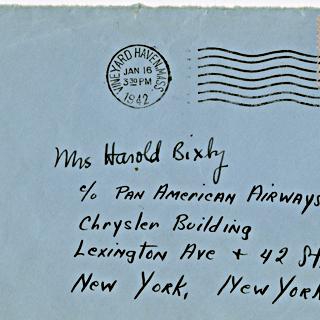 VINEYARD HAVEN, MASS.
JAN 16
3 30 PM
1942
Mrs Harold Bixby
c/o PAN AMERICAN AIRWAYS
Chrysler Building
Lexington Ave + 42 St
New York, New York